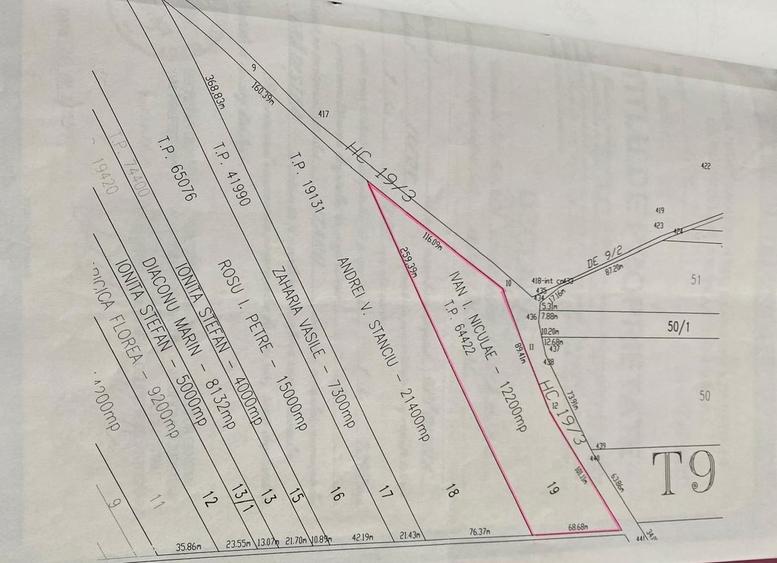 368.83m
9
160.39m
417
HC 19/3
422
419
423
424
DE 9/2
87.20m
418-int
17.16m
5.31m
436 7.88m
10.20m
12.68m
437
438
51
50/1
50
T9
10
11
116.09m
259.39m
89.41m
73.91m
HC 19/3
439
440
63.86m
T.P. 74400
19420
T.P. 65076
T.P. 41990
T.P. 19131
FLOREA - 9200mp
IONITA STEFAN - 5000mp
DIACONU MARIN - 8132mp
IONITA STEFAN - 4000mp
ROSU I. PETRE - 15000mp
ZAHARIA VASILE - 7300mp
ANDREI V. STANCIU - 21400mp
IVAN I. NICULAE - 12200mp
T.P. 64422
9
11
12
13/1
13
15
16
17
18
19
35.86m
23.55m
13.07m
21.70m
10.89m
42.19m
21.43m
76.37m
68.68m